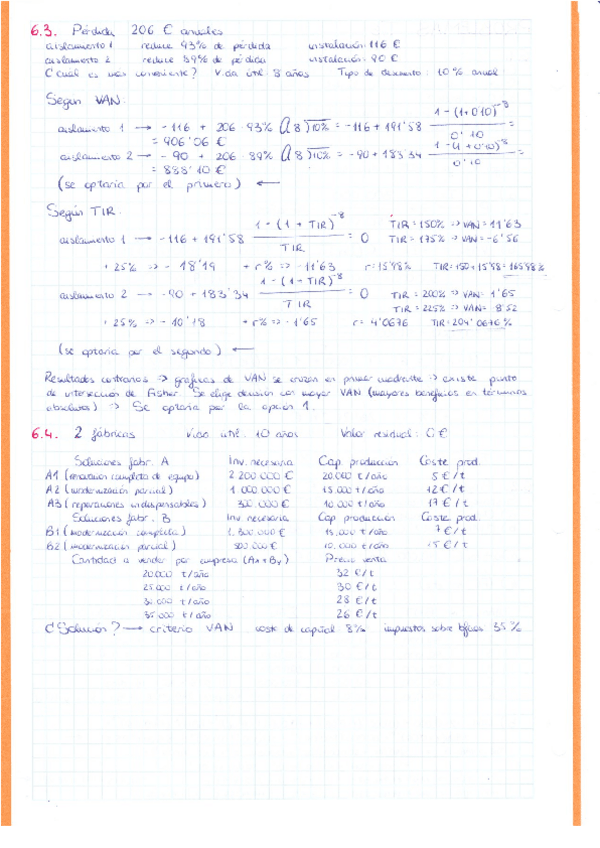 6.3. Pérdida 206 € anuales
aislamiento 1 reduce 93% de pérdida instalación: 116 €
aislamiento 2 reduce 89% de pérdida instalación: 90 €
¿Cuál es más conveniente? Vida útil: 8 años Tipo de descuento: 10% anual
Según VAN:
aislamiento 1 → -116 + 206·93% a 8 10% = -116 + 191'58 1-(1+0'10)^-8 / 0'10 =
= 906'06 €
aislamiento 2 → -90 + 206·89% a 8 10% = -90 + 183'34 1-(1+0'10)^-8 / 0'10 =
= 888'10 €
(se optaría por el primero) ←
Según TIR:
aislamiento 1 → -116 + 191'58 1-(1+TIR)^-8 / TIR = 0 TIR=150% => VAN=11'63
TIR=175% => VAN=-6'56
+25% => -18'19 +r% => -11'63 r=15'98% TIR=150+15'98=165'98%
aislamiento 2 → -90 + 183'34 1-(1+TIR)^-8 / TIR = 0 TIR=200% => VAN=1'65
TIR=225% => VAN= 8'52
+25% => -10'18 +r% => -1'65 r=4'0676 TIR=204'0676%
(se optaría por el segundo) ←
Resultados contrarios → gráficas de VAN se cruzan en primer cuadrante → existe punto
de intersección de Fisher. Se elige decisión con mayor VAN (mayores beneficios en términos
absolutos) → Se optaría por la opción 1.
6.4. 2 fábricas Vida útil: 10 años Valor residual: 0 €
Soluciones fabr. A Inv. necesaria Cap producción Coste prod.
A1 (renovación completa de equipo) 2 200 000 € 20.000 t/año 5 €/t
A2 (modernización parcial) 1 000 000 € 15 000 t/año 12 €/t
A3 (reparaciones indispensables) 300.000 € 10 000 t/año 17 €/t
Soluciones fabr. B Inv necesaria Cap producción Coste prod.
B1 (modernización completa) 1.300 000 € 15,000 t/año 7 €/t
B2 (modernización parcial) 500 000 € 10.000 t/año 15 €/t
Cantidad a vender por empresa (Ax+By) Precio venta
20.000 t/año 32 €/t
25 000 t/año 30 €/t
30 000 t/año 28 €/t
35 000 t/año 26 €/t
¿Solución? → criterio VAN coste de capital 8% impuestos sobre bfcios 35%